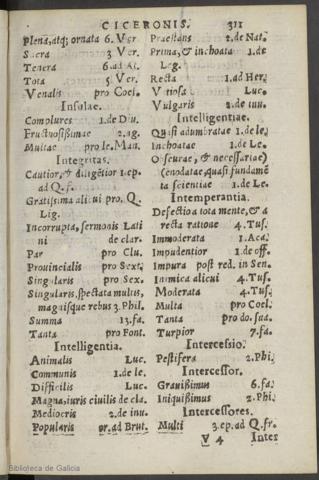 CICERONIS. 311
Plena, atq; ornata 6. Ver
Sacra 3 Ver.
Tenera 6. ad At.
Tota 5 Ver.
Venalis pro Coel.
Insulae.
Complures 1. de Diu.
Fructuosißimae 2. ag.
Multae pro le. Man.
Integritas.
Cautior, & diligẽtior 1. ep.
ad Q. f.
Gratißima alicui pro. Q.
Lig.
Incorrupta, sermonis Lati
ni de clar.
Par pro Clu.
Prouincialis pro Sext.
Singularis pro Sex.
Singularis, spectata multis,
magnisque rebus 3. Phil.
Summa 13. fa.
Tanta pro Font.
Intelligentia.
Animalis Luc.
Communis 1. de le.
Difficilis Luc.
Magna, iuris ciuilis de cla.
Mediocris 2. de inu.
Popularis pr. ad Brut.
Praestans 2. de Nat.
Prima, & inchoata 1. de
Leg.
Recta 1. ad Her.
Vitiosa Luc.
Vulgaris 2. de inu.
Intelligentiae.
Quasi adumbratae 1. de le.
Inchoatae 1. de Le.
Obscurae, & necessariae)
(enodatae, quasi fundamẽ
ta scientiae 1. de Le.
Intemperantia.
Defectio a tota mente, & a
recta ratione 4. Tus.
Immoderata 1. Aca.
Impudentior 1. de off.
Impura post red. in Sen.
Inimica alicui 4. Tus.
Moderata 4. Tus.
Multa pro Coel.
Tanta pro do. sua.
Turpior 7. fa.
Intercessio.
Pestifera 2. Phi.
Intercessor.
Grauißimus 6. fa.
Iniquißimus 2. Phi.
Intercessores.
Multi 3. ep. ad Q. fr.
V 4 Inter
Biblioteca de Galicia